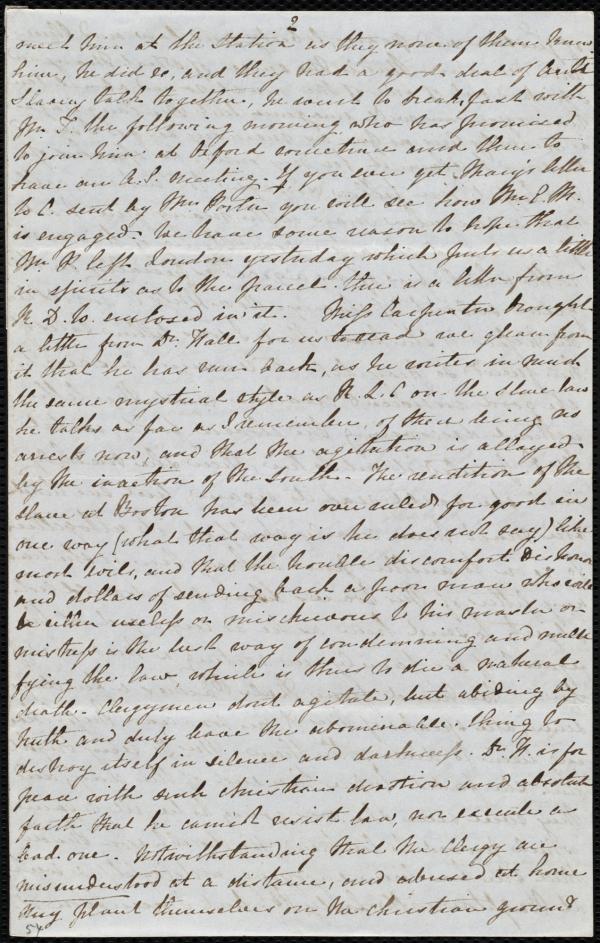 2
meet him at the station as they none of them knew
him, he did so, and they had a good deal of Anti
Slavery talk together, he went to breakfast with
Mr T. the following morning who has promised
to join him at Oxford sometime and then to
have an A.S. meeting. If you ever get Mary's letter
to C. sent by Mrs. Porter you will see how Mr E. M.
is engaged. We have some reason to hope that
Mr P. left London yesterday which puts us a little
in spirits as to the parcel. there is a letter from
R. D. W. enclosed in it. Miss Carpenter brought
a letter from Dr. Hall for us to read we glean from
it that he has run back, as he writes in much
the same mystical style as R. L. C on the Slave law
he talks as far as I remember, of there being no
arrests now, and that the agitation is allayed
by the inaction of the South. The rendition of the
slave at Boston has been overruled for good in
one way (what that way is he does not say) like
most evils, and that the trouble discomfort dishonor
and dollars of sending back a poor man who will
be either useless or mischievous to his master or
mistress is the best way of condemning and nulli
fying the law, which is thus to die a natural
death. Clergymen dont agitate, but abiding by
truth and duty leave the abominable thing to
destroy itself in silence and darkness. Dr. H. is for
peace with such christian devotion and absolute
faith that he cannot resist law, nor execute a
bad one. Notwithstanding that the Clergy are
misunderstood at a distance, and abused at home
they plant themselves on the christian ground